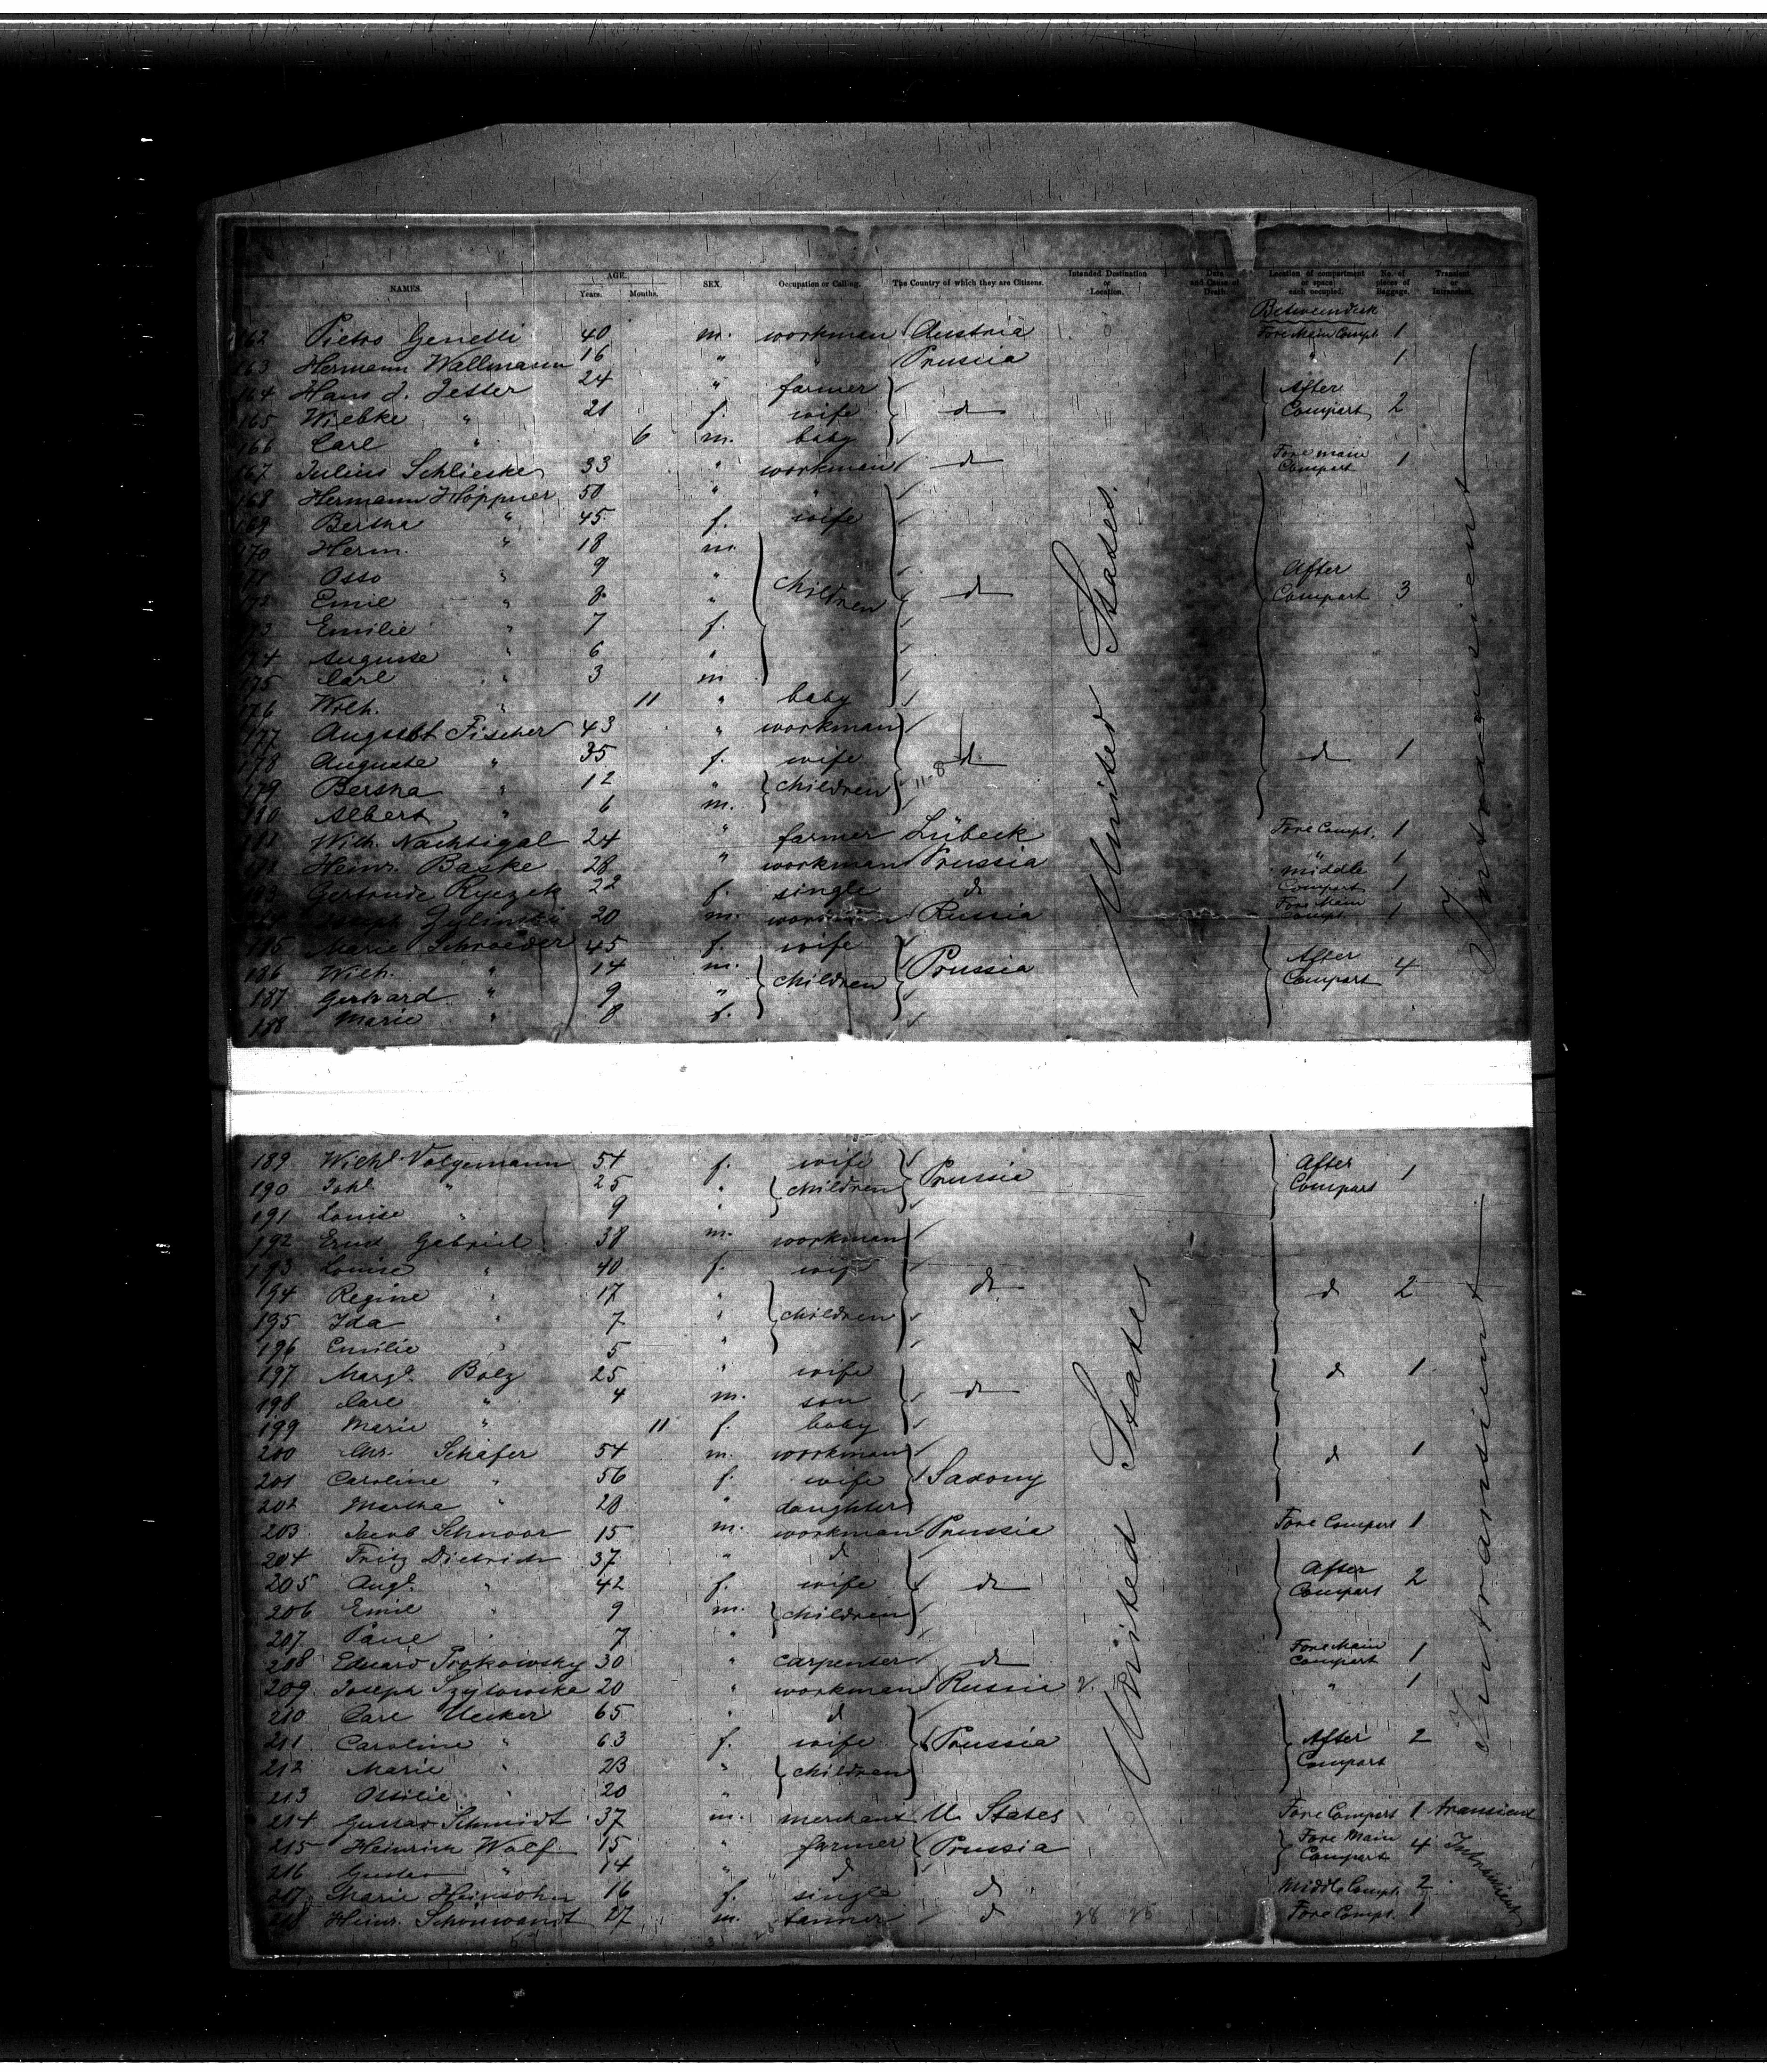 NAMES. AGE. Years. Months. SEX. Occupation or Calling. The Country of which they are Citizens. Intended Destination or Location. Date and Cause of Death. Location of compartment or space each occupied. No. of pieces of Baggage. Transient or Intransient.
Betweendeck
162 Pietro Genetti 40 m. workman Austria Fore Main Compt. 1
163 Hermann Wallmann 16 " " Prussia " 1
164 Hans J. Jesser 24 " farmer After
165 Wiebke " 21 f. wife do Compart 2
166 Carl " 6 m. baby
167 Julius Schlieske 33 " workman do Fore main Compart 1
168 Hermann Höppner 50 " "
169 Bertha " 45 f. wife
170 Herm. " 18 m.
171 Otto " 9 " children After
172 Emil " 8 " do Compart 3
173 Emilie " 7 f.
174 Auguste " 6 "
175 Carl " 3 m
176 Wilh. " 11 " baby
177 August Fischer 43 " workman
178 Auguste " 35 f. wife do d 1
179 Bertha " 12 " children 11-8
180 Albert " 6 m.
181 Wilh. Nachtigal 24 " farmer Lübeck Fore Compt. 1
182 Heinr. Baske 28 " workman Prussia " 1
183 Gertrude Ryczek 22 f. single do middle Compart 1
184 Joseph 20 m. workman Russia Fore Main Compt. 1
185 Marie Schroeder 45 f. wife
186 Wilh. " 14 m. children Prussia After Compart 4
187 Gerhard " 9 "
188 Marie " 8 f.
United States
Intransient
189 Wilh. Volgemann 54 f. wife After
190 Joh. " 25 " children Prussia Compart 1
191 Louise " 9 "
192 Ernd Gabriel 38 m. workman
193 Louise " 40 f. wife
194 Regine " 17 " do d 2
195 Ida " 7 " children
196 Emilie " 5 "
197 Margt. Bolz 25 " wife d 1
198 Carl " 4 m. son do
199 Marie " 11 f. baby
200 Chr. Schäfer 54 m. workman d 1
201 Caroline " 56 f. wife Saxony
202 Martha " 20 " daughter
203 Jacob Schnoor 15 m. workman Prussia Fore Compart 1
204 Fritz Dietrich 37 " d
205 Augt. " 42 f. wife do After Compart 2
206 Emil " 9 m. children
207 Paul " 7 "
208 Eduard Prokowsky 30 " carpenter do Fore Main Compart 1
209 Joseph 20 " workman Russia " 1
210 Carl Uecker 65 " d
211 Caroline " 63 f. wife Prussia After 2
212 Marie " 23 " children Compart
213 Ottilie " 20 "
214 Gustav Schmidt 37 m. merchant U. States Fore Compart 1 transient
215 Heinrich Wolf 15 " farmer Prussia Fore Main Compart 4
216 Gustav " 14 " d
217 Marie Heinsohn 16 f. single d Middle Compt. 2
218 Heinr. Schönwandt 27 m. tanner d Fore Compt. 1
United States
Intransient
Intransient